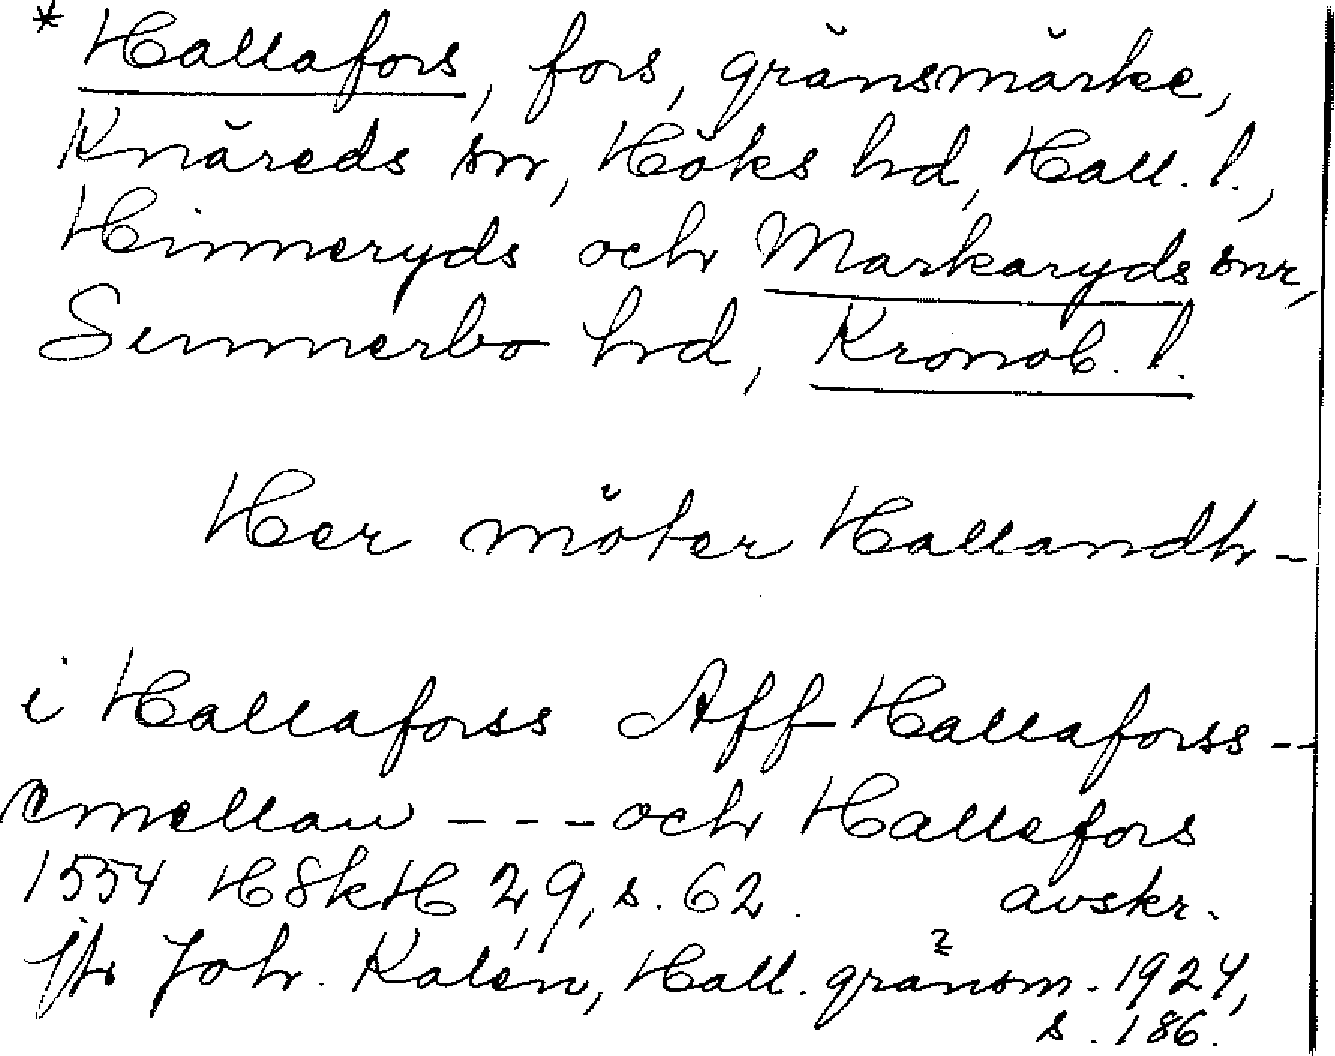 * Hallafors, fors, gränsmärke,
Knäreds sn, Höks hd, Hall. l.,
Hinneryds och Markaryds snr,
Sunnerbo hd, Kronob. l.
Her möter Hallandh -
i Hallaforss Aff Hallaforss --
emellan --- och Hallefors
1554 HSkH 29, s. 62. avskr.
jfr Joh. Kalén, Hall. gränsm. 1924,
s. 186.